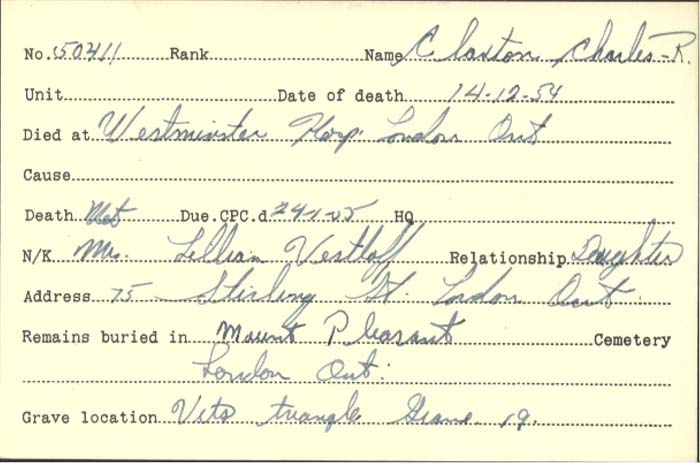 No. 50411 Rank Name Claxton Charles-R.
Unit Date of death 14-12-54
Died at Westminster Hosp. London Ont
Cause
Death Not Due.CPC.d 24-1-55 HQ
N/K Mrs. Lillian Vesthoff Relationship Daughter
Address 75 Stirling St. London Ont.
Remains buried in Mount Pleasant Cemetery
London Ont.
Grave location Vets triangle Grave 19.